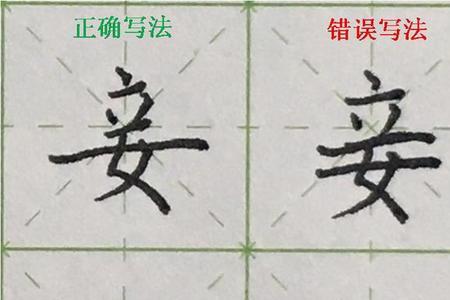 正确写法 错误写法
妾 妾